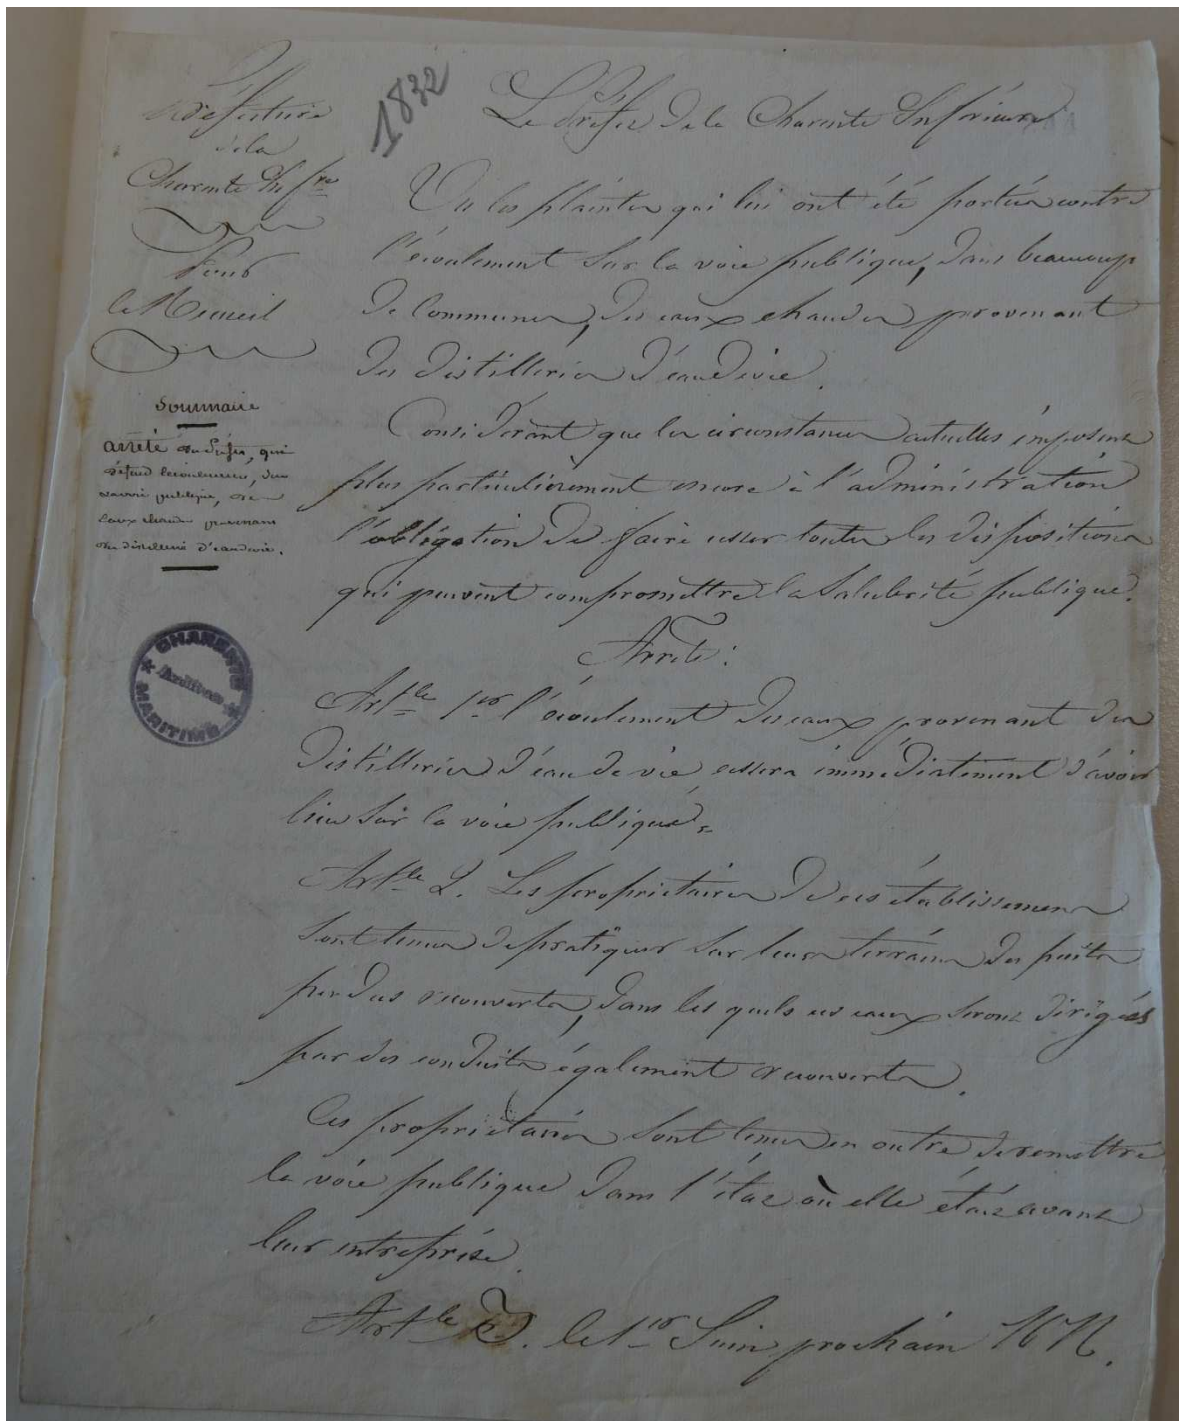 Préfecture
de la
Charente Infre
Pour
le Recueil
Sommaire
arrêté du Préfet, qui
défend l'écoulement, sur
la voie publique, des
eaux chaudes provenans
des distilleries d'eau de vie.
CHARENTE
Archives
MARITIME
1832
Le Préfet de la Charente Inférieure
Vu les plaintes qui lui ont été portées contre
l'écoulement sur la voie publique, dans beaucoup
de Communes, des eaux chaudes provenant
des distilleries d'eau de vie.
Considérant que les circonstances actuelles imposent
plus particulièrement encore à l'administration
l'obligation de faire cesser toutes les dispositions
qui peuvent compromettre la salubrité publique.
Arrête :
Artle 1er l'écoulement des eaux provenant des
distilleries d'eau de vie cessera immédiatement d'avoir
lieu sur la voie publique.
Artle 2. Les propriétaires de ces établissemens
sont tenus de pratiquer sur leurs terrains des puits
perdus recouverts, dans les quels ces eaux seront dirigées
par des conduits également recouverts.
Ces propriétaires sont tenus en outre de remettre
la voie publique dans l'état où elle était avant
leur entreprise.
Artle 3. le 1er Juin prochain MM.